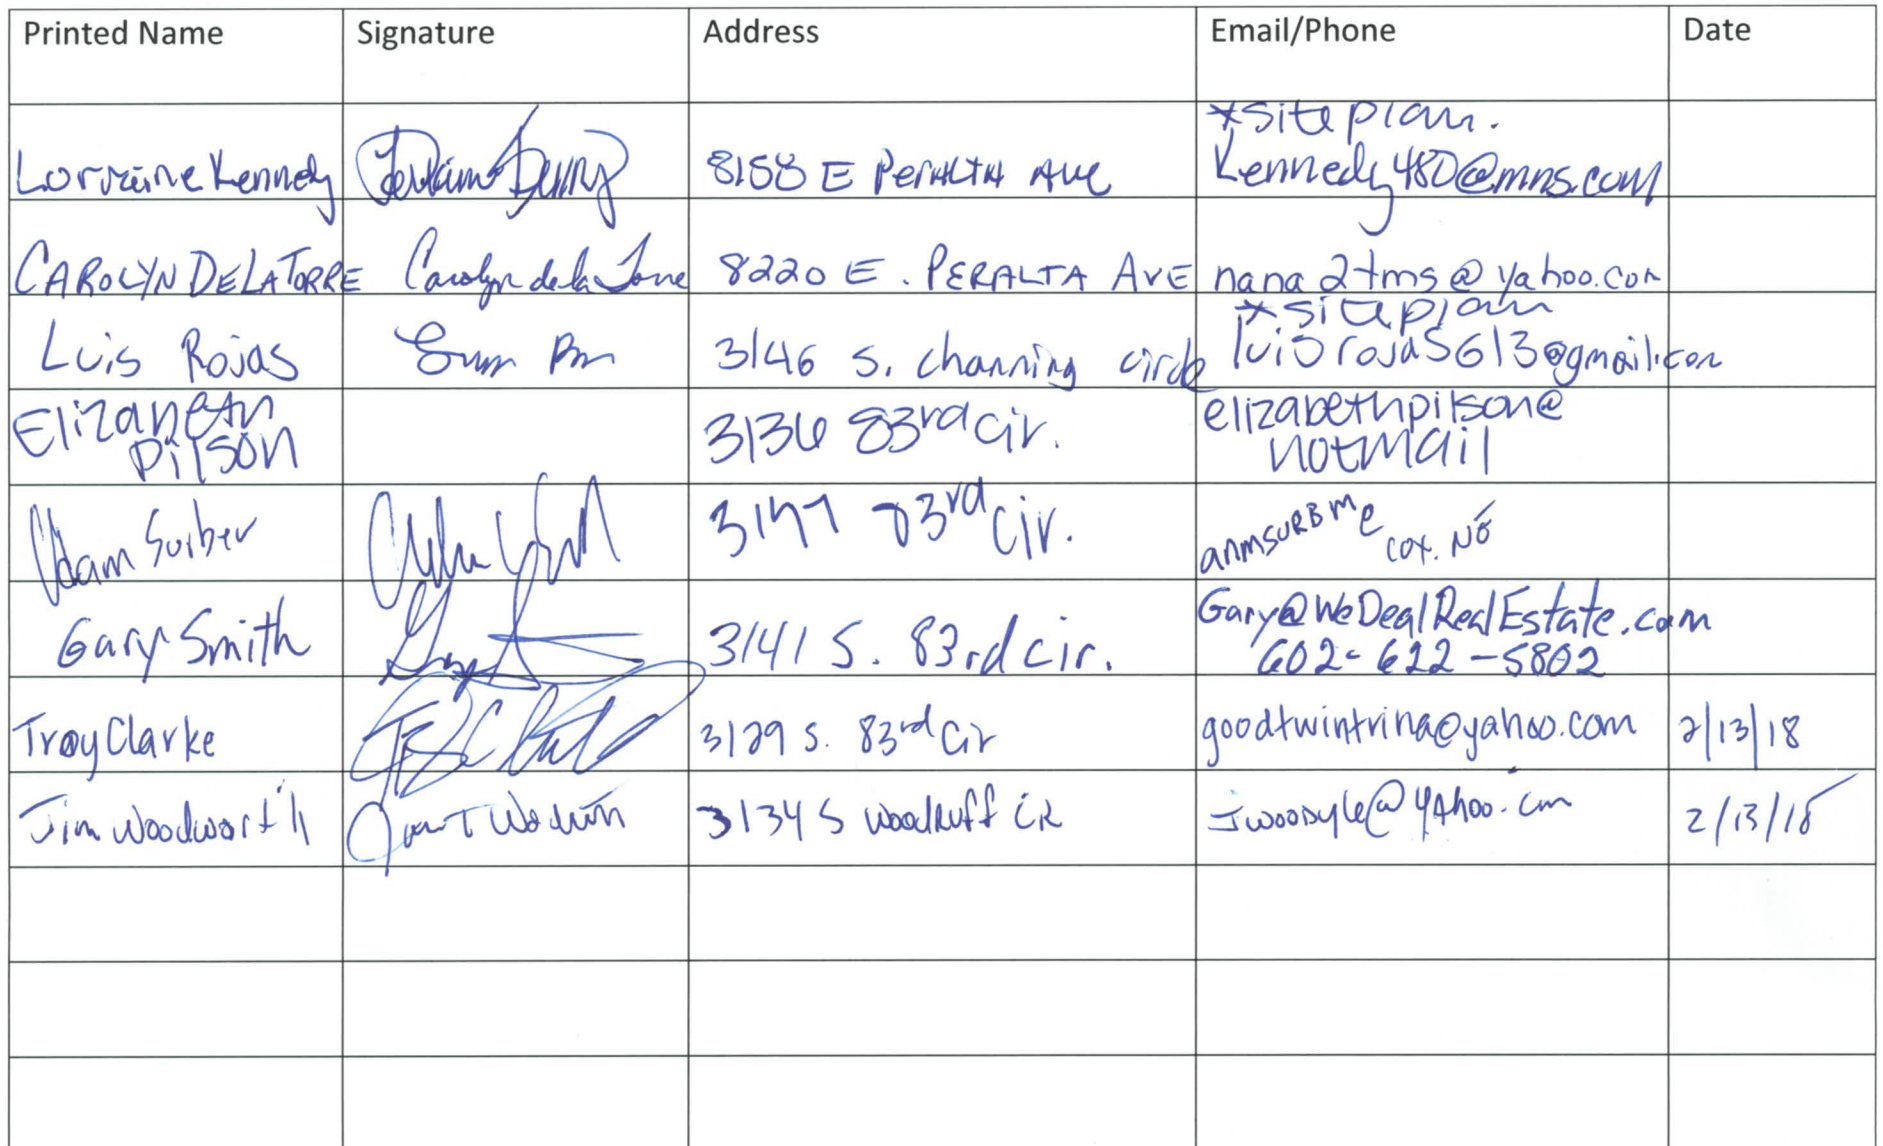 Printed Name Signature Address Email/Phone Date
*site plan.
Lorraine Kennedy 8158 E Peralta Ave Kennedy480@mns.com
CAROLYN DELATORRE Carolyn de la Torre 8220 E. PERALTA AVE nana2tms@yahoo.com
*site plan
Luis Rojas 3146 S. channing circle luisrojas613@gmail.com
Elizabeth 3136 83rd cir. elizabethpilson@
Pilson hotmail
Adam Surber 83rd cir.
Gary Smith 3141 S. 83rd cir. Gary@WeDealRealEstate.com
602-622-5802
Troy Clarke 3129 S. 83rd Cir goodtwintrina@yahoo.com 2/13/18
Jim Woodworth 3134 S Woodruff CR 2/13/18